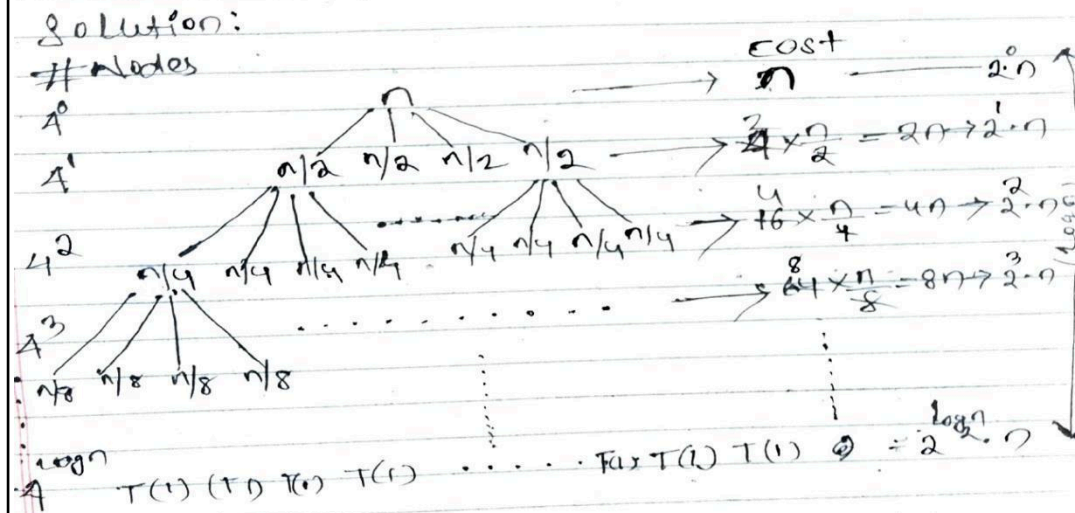 Solution:
# Nodes cost
4⁰ n → n — 2⁰·n
4¹ n/2 n/2 n/2 n/2 → 4 × n/2 = 2n → 2¹·n
4² n/4 n/4 n/4 n/4 ....... n/4 n/4 n/4 n/4 → 16 × n/4 = 4n → 2²·n
4³ n/8 n/8 n/8 n/8 ......... → 64 × n/8 = 8n → 2³·n
4^logn T(1) (T1) T(1) T(1) ...... T(1) T(1) = 2^log₂n · n